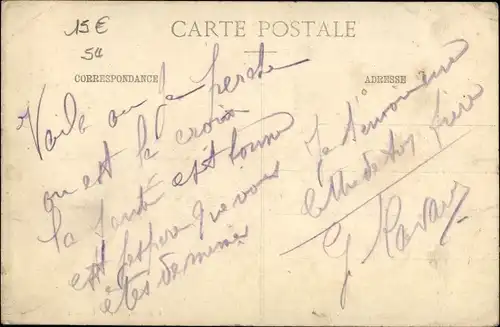 15 €
54
CARTE POSTALE
CORRESPONDANCE
ADRESSE
Voila ou je perche
ou est la croix
la santé est bonne
est j'espere que vous
êtes de meme
Je t'envoi une
lettre de ton frère
J.